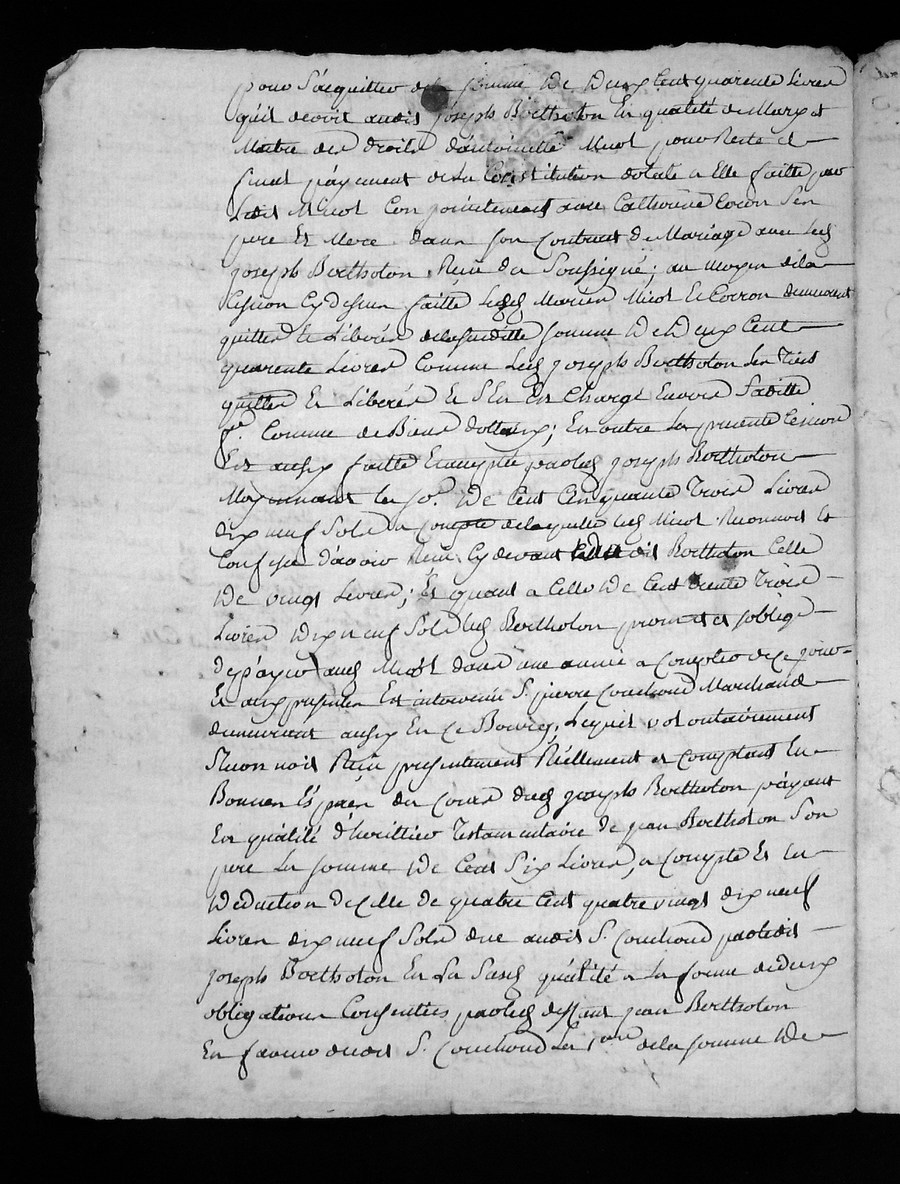 pour s'acquitter de somme de deux cent quarente Livres
qu'il devoit audit joseph Bertholon En qualité de Mary et
Maitre des droits d'antoinette Micol pour Reste et
final payement de la Constitution dotale a Elle faitte par
Ledit Micol Conjointement avec Catherine Coron Ses
pere Et Mere dans son Contrat de Mariage avec led
joseph Bertholon Reçu du Soussigné; au moyen de la
Cession Cy dessus faitte Lesd Mariés Micol et Corron demeurent
quittes et Libérés de la susditte somme de deux Cent
quarente Livres Comme led joseph Bertholon les tient
quittes et Libérés et S'En Est Chargé Envers saditte
fe. Comme de Biens dottaux; En outre La presente Cession
Est aussy faitte Ecceptée par led joseph Bertholon
Moyennant la so.e de Cent Cinquante trois Livres
dix neuf Sols a Compte de laquelle led Micol Reconnoit Et
Confesse d'avoir Reçu Cy devant dudit Bertholon Celle
de vingt Livres; Et quant a Celle de Cent trente trois
Livres dix neuf Sols led Bertholon promet et s'oblige
de payer aud Micol dans une année a Compter de Ce jour
Et aux presentes Est intervenu S. pierre Couchoud Marchand
demeurant aussy En Ce Bourg, Lequel volontairement
Reconnoit Reçu presentement Réellement et Comptant En
Bonnes Especes du Cours dud joseph Bertholon payant
En qualité d'herittier testamentaire de jean Bertholon Son
pere La somme de Cent Six Livres, a Compte Et En
deduction de Celle de quatre Cent quatre vingt dix neuf
Livres dix neuf Sols due audit S. Couchoud par ledit
joseph Bertholon En La Susd qualité a la forme de deux
obligations Consenties par led deffunt jean Bertholon
En faveur dudit S. Couchoud La 1.ere de la somme de